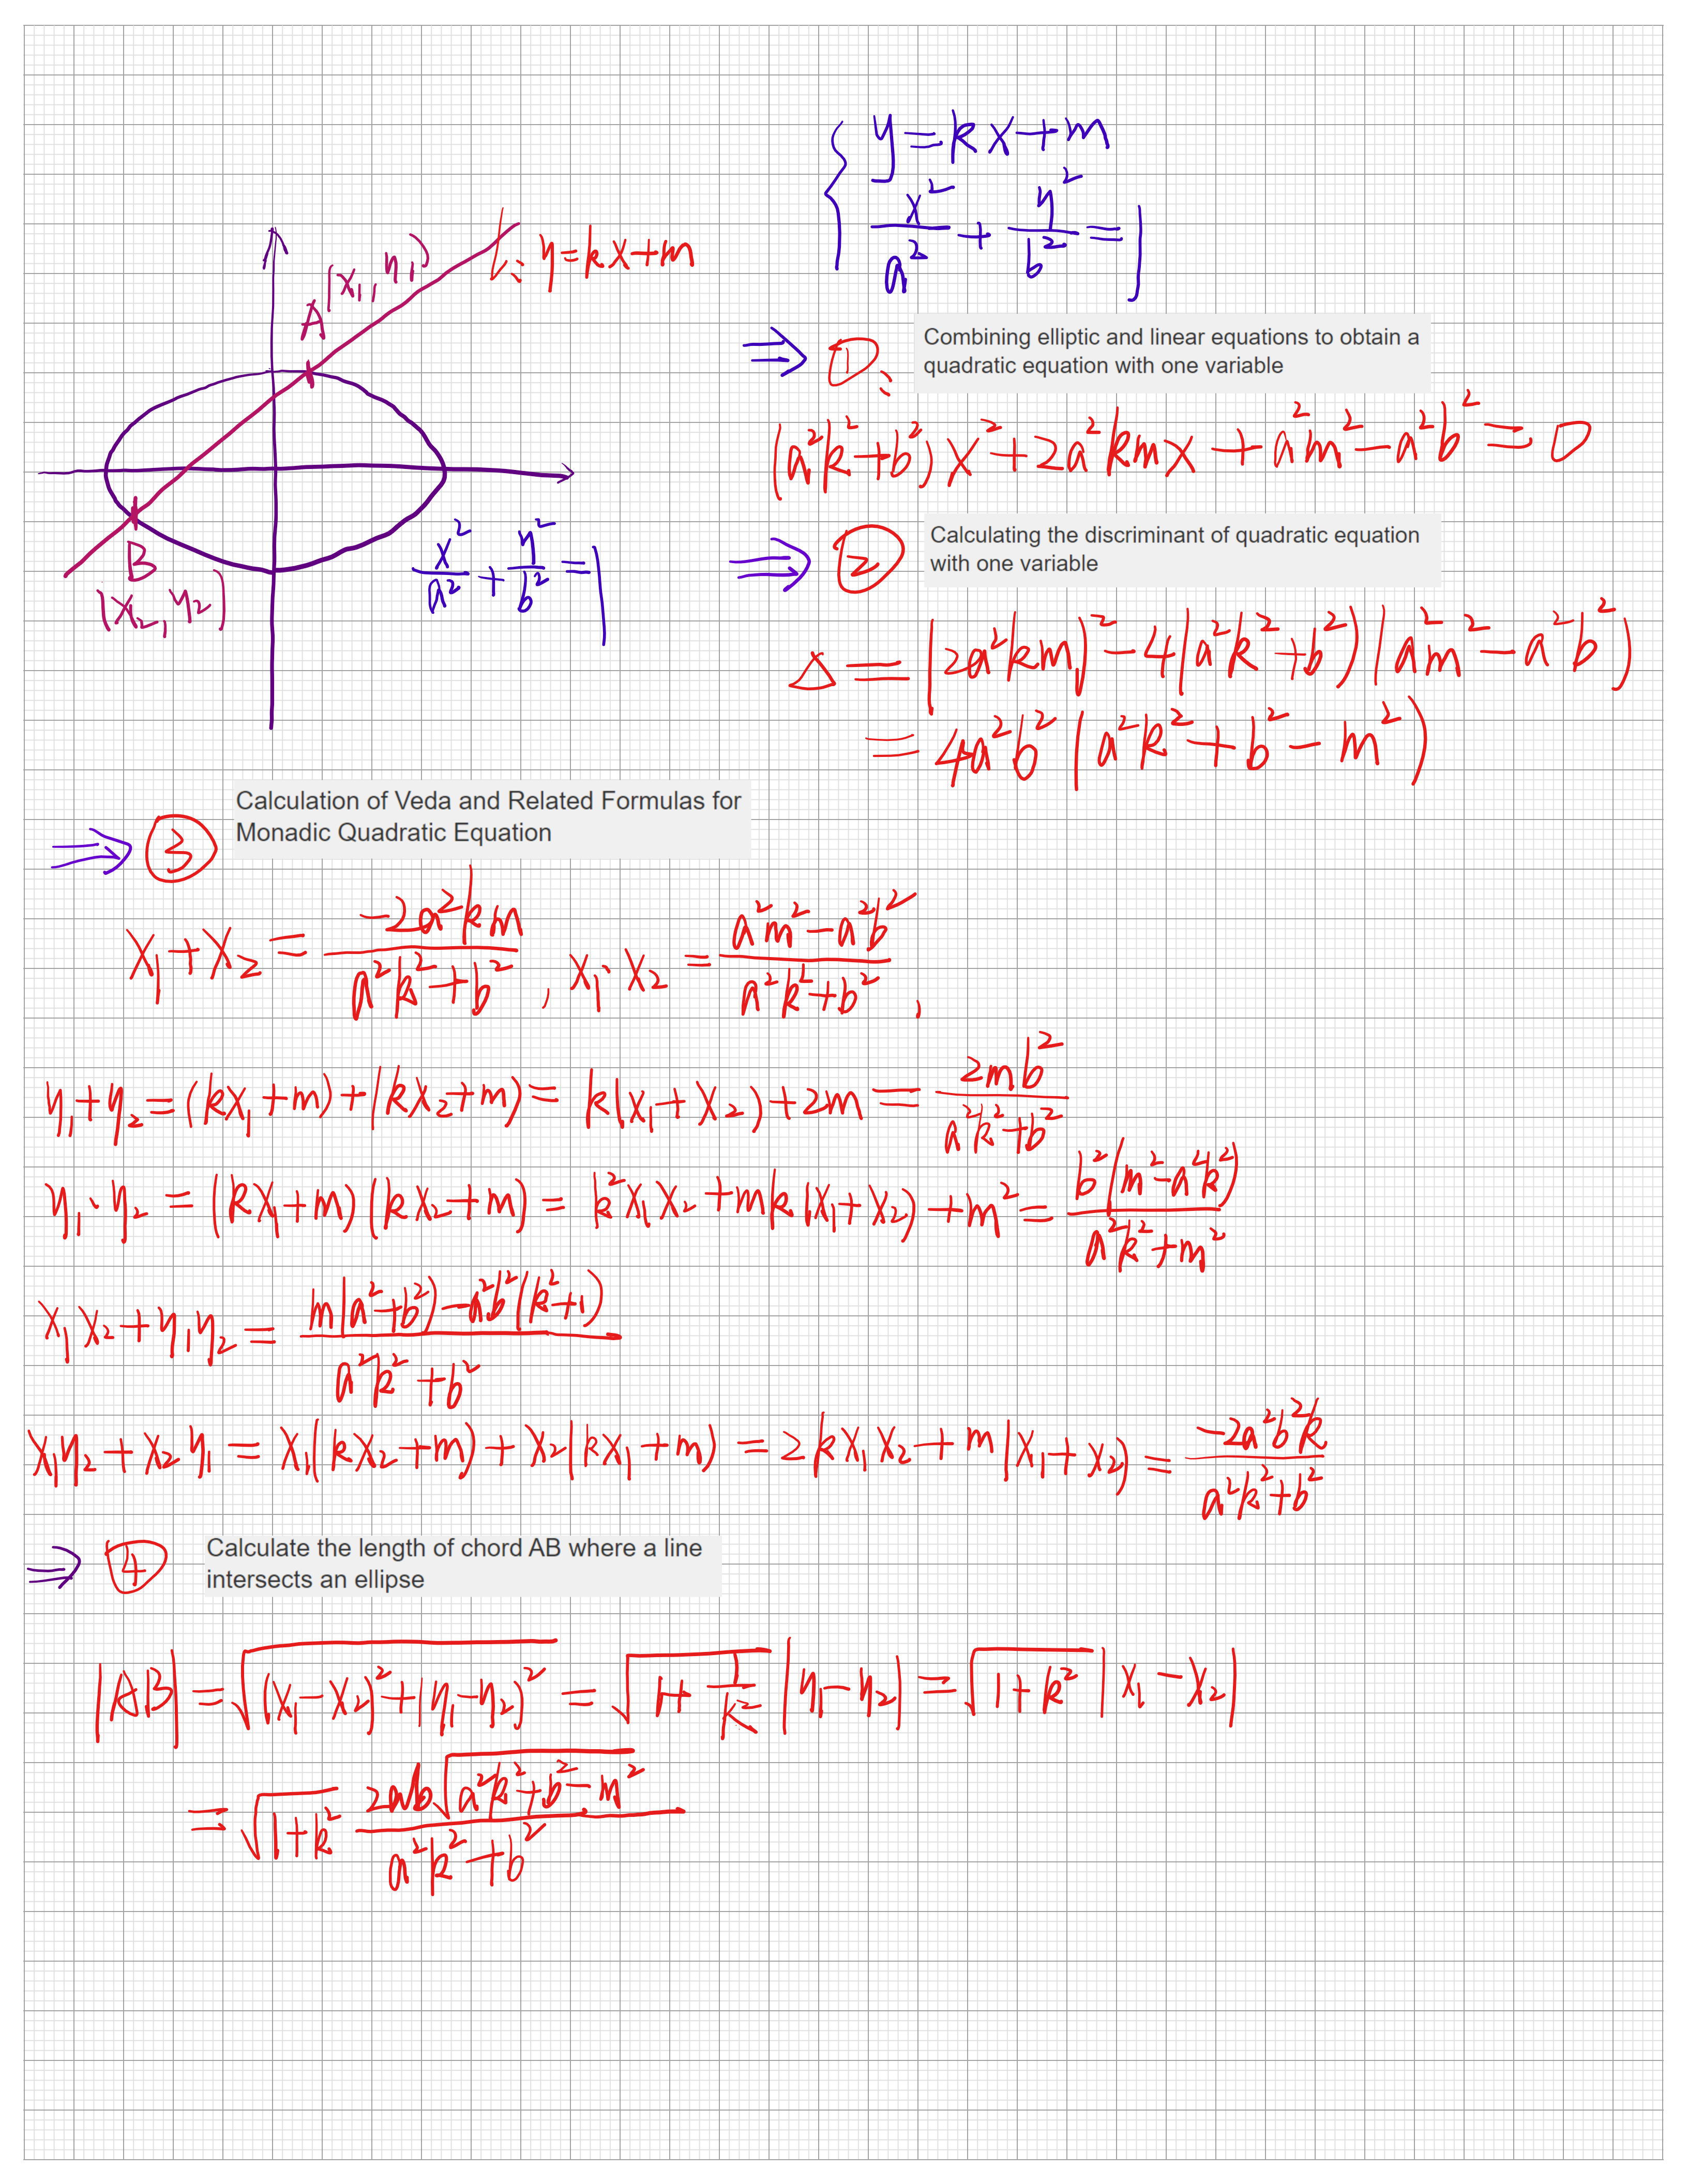 y=kx+m
x²/a² + y²/b² =1
l: y=kx+m
A(x₁,y₁)
B
(x₂,y₂)
x²/a² + y²/b² =1
⇒ ①: Combining elliptic and linear equations to obtain a
quadratic equation with one variable
(a²k²+b²)x²+2a²kmx+a²m²-a²b²=0
⇒ ② Calculating the discriminant of quadratic equation
with one variable
Δ=(2a²km)²-4(a²k²+b²)(a²m²-a²b²)
=4a²b²(a²k²+b²-m²)
⇒ ③ Calculation of Veda and Related Formulas for
Monadic Quadratic Equation
x₁+x₂ = (-2a²km)/(a²k²+b²), x₁·x₂ = (a²m²-a²b²)/(a²k²+b²),
y₁+y₂=(kx₁+m)+(kx₂+m)=k(x₁+x₂)+2m=(2mb²)/(a²k²+b²)
y₁·y₂=(kx₁+m)(kx₂+m)=k²x₁x₂+mk(x₁+x₂)+m²=(b²(m²-a²k²))/(a²k²+m²)
x₁x₂+y₁y₂=(m(a²+b²)-a²b²(k²+1))/(a²k²+b²)
x₁y₂+x₂y₁=x₁(kx₂+m)+x₂(kx₁+m)=2kx₁x₂+m(x₁+x₂)=(-2a²b²k)/(a²k²+b²)
⇒ ④ Calculate the length of chord AB where a line
intersects an ellipse
|AB|=√((x₁-x₂)²+(y₁-y₂)²)=√(1+1/k²)|y₁-y₂|=√(1+k²)|x₁-x₂|
=√(1+k²) (2ab√(a²k²+b²-m²))/(a²k²+b²)